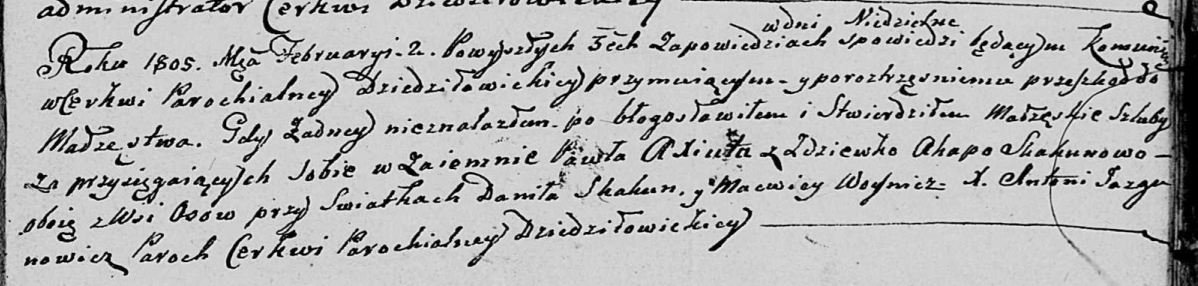 administrator Cerkwi Dziedziłowickiey
w dni Niedzielne
Roku 1805. Mca Februaryi. 2. Po wyszłych 3ech Zapowiedziach spowiedzi będącym Kommunią
w Cerkwi Parochialney Dziedziłowickiey przymuiącym y po roztrzęsnieniu przeszkod do
Małzęstwa. Gdy Zadney nieznalazłem po błogosławiłem i Stwierdziłem Małzęskie Szluby
Za przysięgaiących sobie w Zaiemnie Pawła Axiuta z Zdziewko Ahapo Skakunowo
oboię z Wsi Osow przy Swiatkach Daniła Skakun. y Macwiey Woynicz. X. Antoni Jazgu
nowicz Paroch Cerkwi Parochialney Dziedziłowickiey